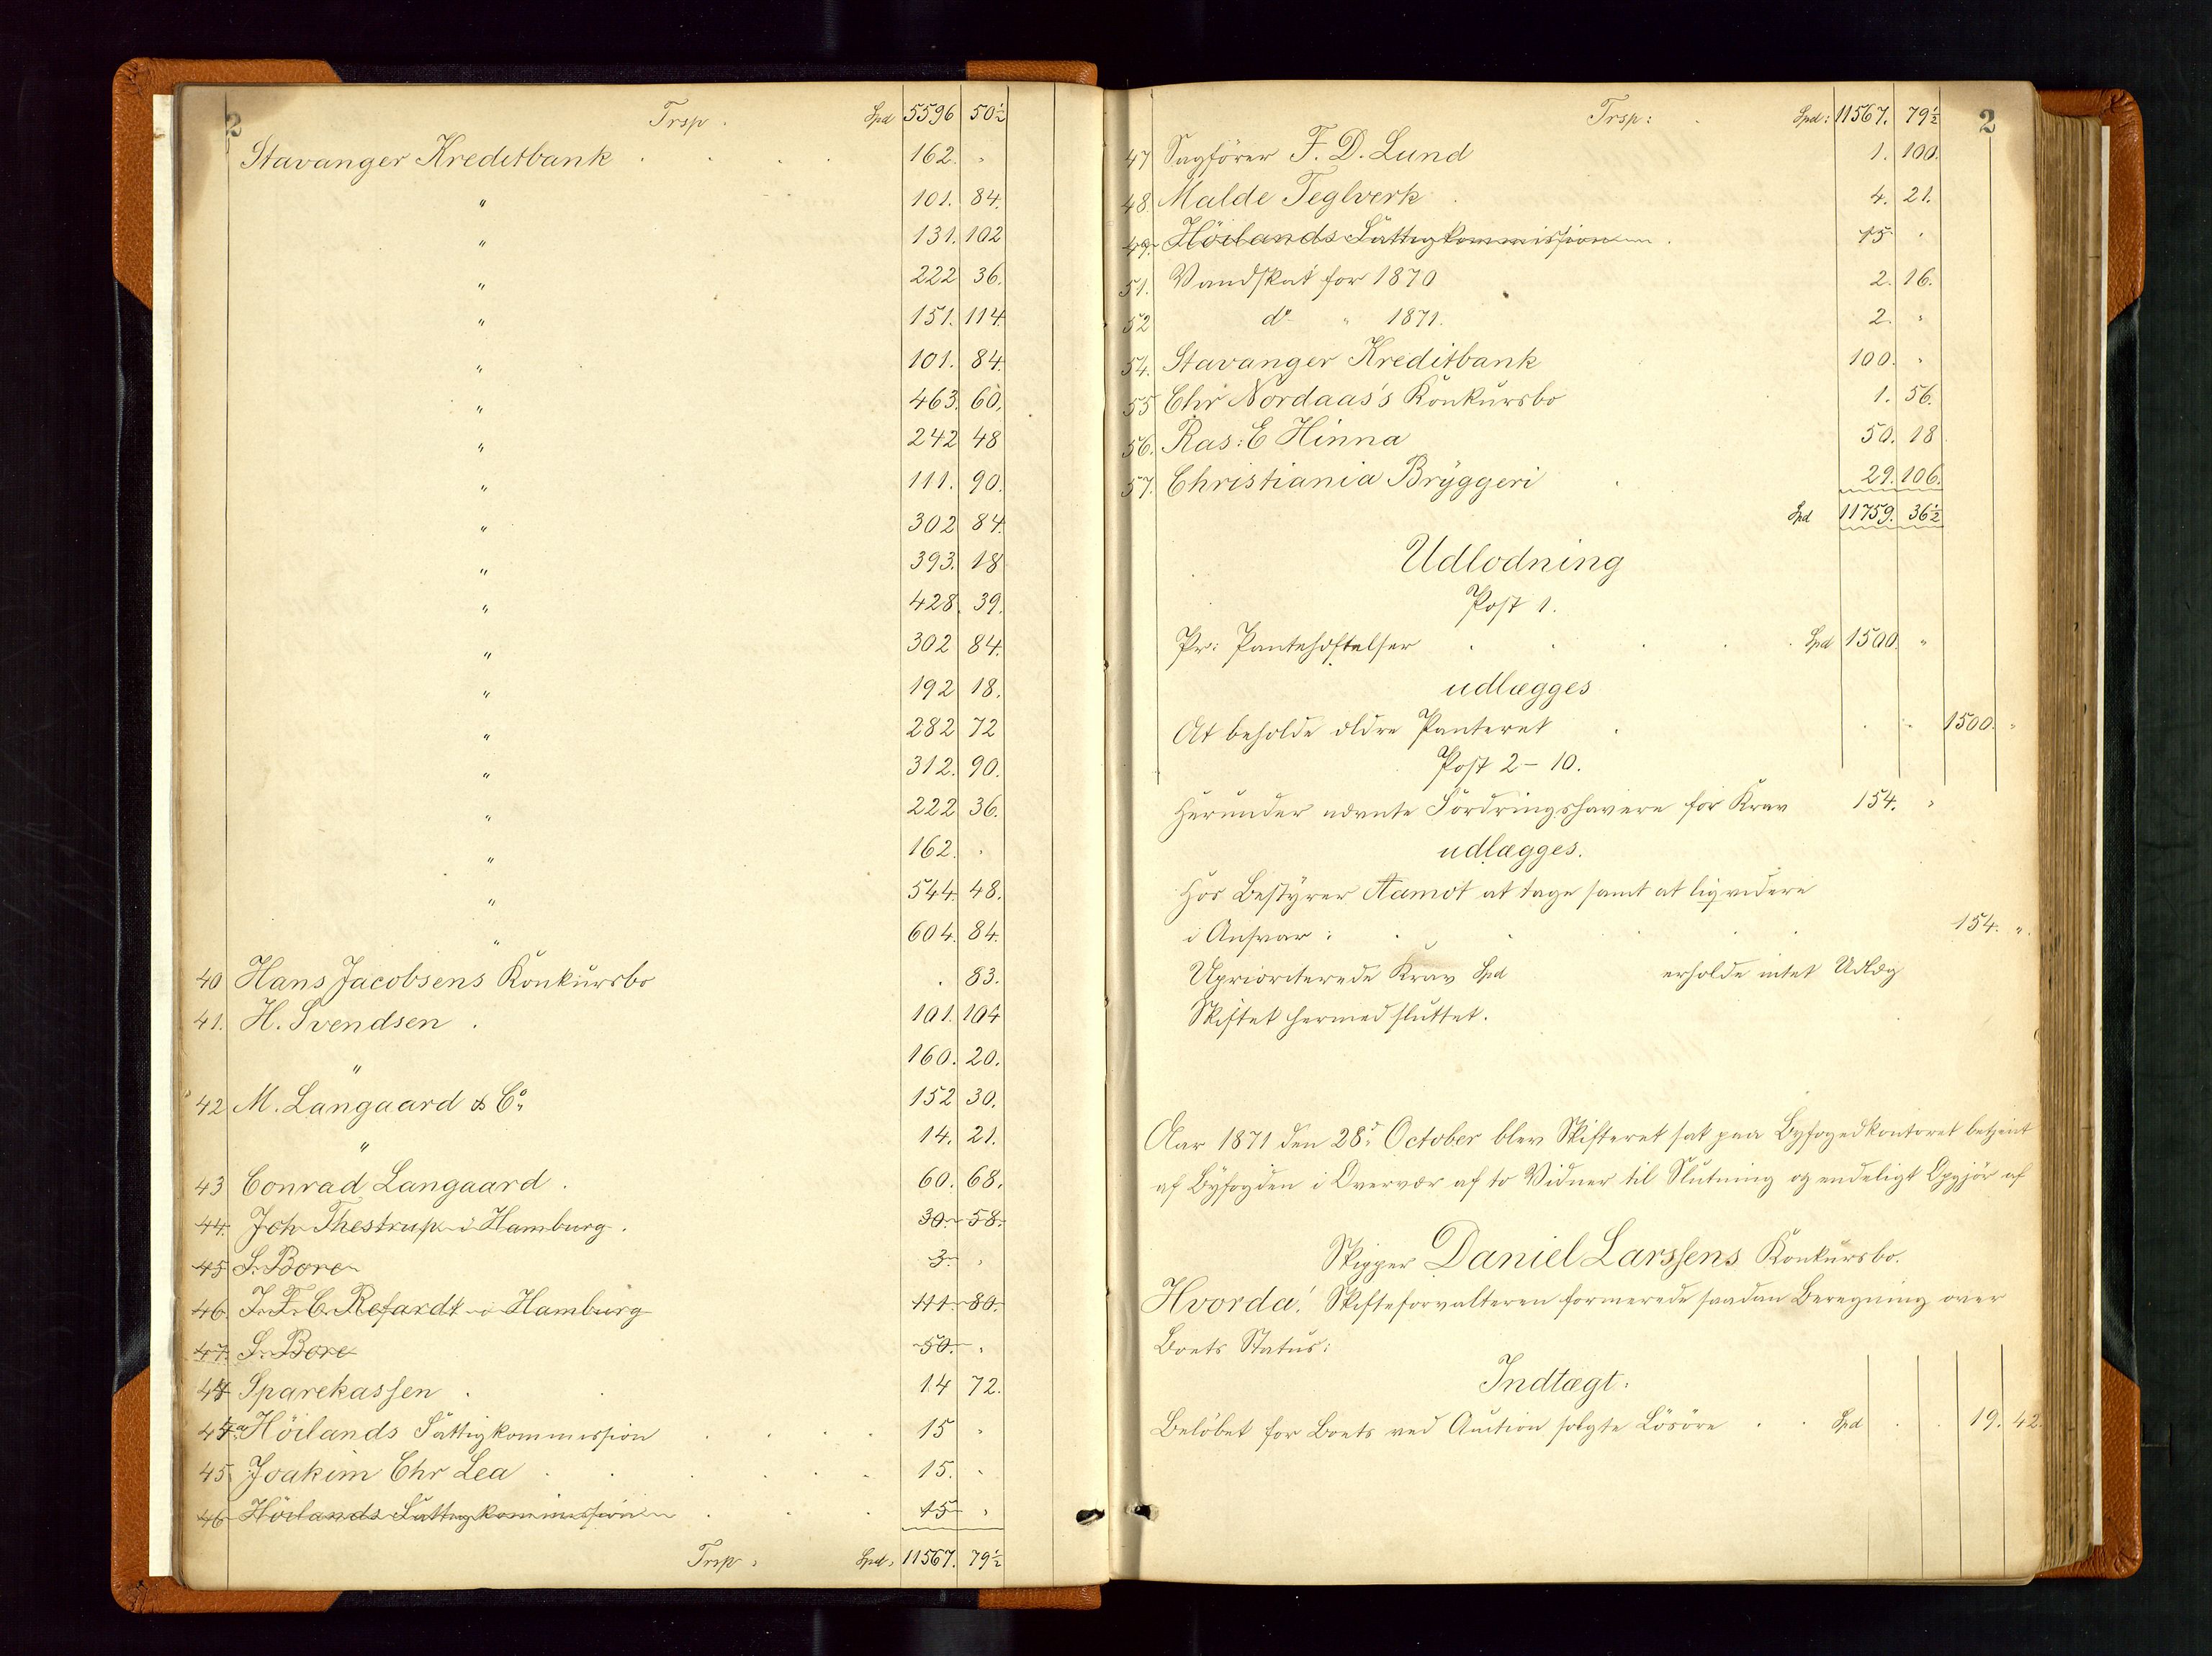 2
Trsp. Spd 5596 50½
Stavanger Kreditbank 162. "
" 101. 84.
" 131. 102
" 222 36.
" 151. 114.
" 101. 84.
" 463. 60.
" 242 48
" 111. 90.
" 302 84.
" 393. 18
" 428. 39.
" 302 84.
" 192 18.
" 282 72
" 312. 90.
" 222 36.
" 162. "
" 544. 48.
" 604. 84.
40 Hans Jacobsens Konkursbo . 83.
41. H. Svendsen . 101. 104
" 160. 20.
42 M. Langaard & Co. 152 30.
" 14. 21.
43 Conrad Langaard . 60. 68.
44. Joh Thestrup i Hamburg. 30. 58.
45 S. Bore 3 "
46. J. F. C. Refardt i Hamburg 111. 80.
47. S. Bore 50. "
44 Sparekassen . 14 72.
44a Höilands Fattigkommission 15 "
45 Joakim Chr Lea 15. "
46 Höilands Fattigkommission 15 "
Trsp: Spd. 11567. 79½
Trsp: Spd: 11567. 79½ 2
47 Sagförer F. D. Lund 1. 100.
48. Malde Teglverk 4. 21.
49. Höilands Fattigkommission 15 "
51. Vandskat for 1870 2. 16.
52 do " 1871. 2. "
54. Stavanger Kreditbank 100. "
55 Chr Nordaas's Konkursbo 1. 56.
56. Ras: E Hinna 50. 18
57. Christiania Bryggeri 29. 106.
Spd 11759. 36½
Udlodning
Post 1.
Pr: Panteheftelser Spd 1500. "
udlægges
At beholde ældre Panteret 1500. "
Post 2-10.
Herunder nævnte Fordringshavere for Krav 154. "
udlægges.
Hos Bestyrer Aamot at tage samt at liqvidere
i Ansvar: 154. "
Uprioriterede Krav Spd erholde intet Udlæg
Skiftet hermed sluttet.
Aar 1871 den 28de October blev Skifteret sat paa Byfogedkontoret betjent
af Byfogden i Overvær af to Vidner til Slutning og endeligt Opgjör af
Skipper Daniel Larssens Konkursbo.
Hvorda! Skifteforvalteren formerede saadan Beregning over
Boets Status:
Indtægt:
Belöbet for Boets ved Auction solgte Lösöre Spd 19. 42.